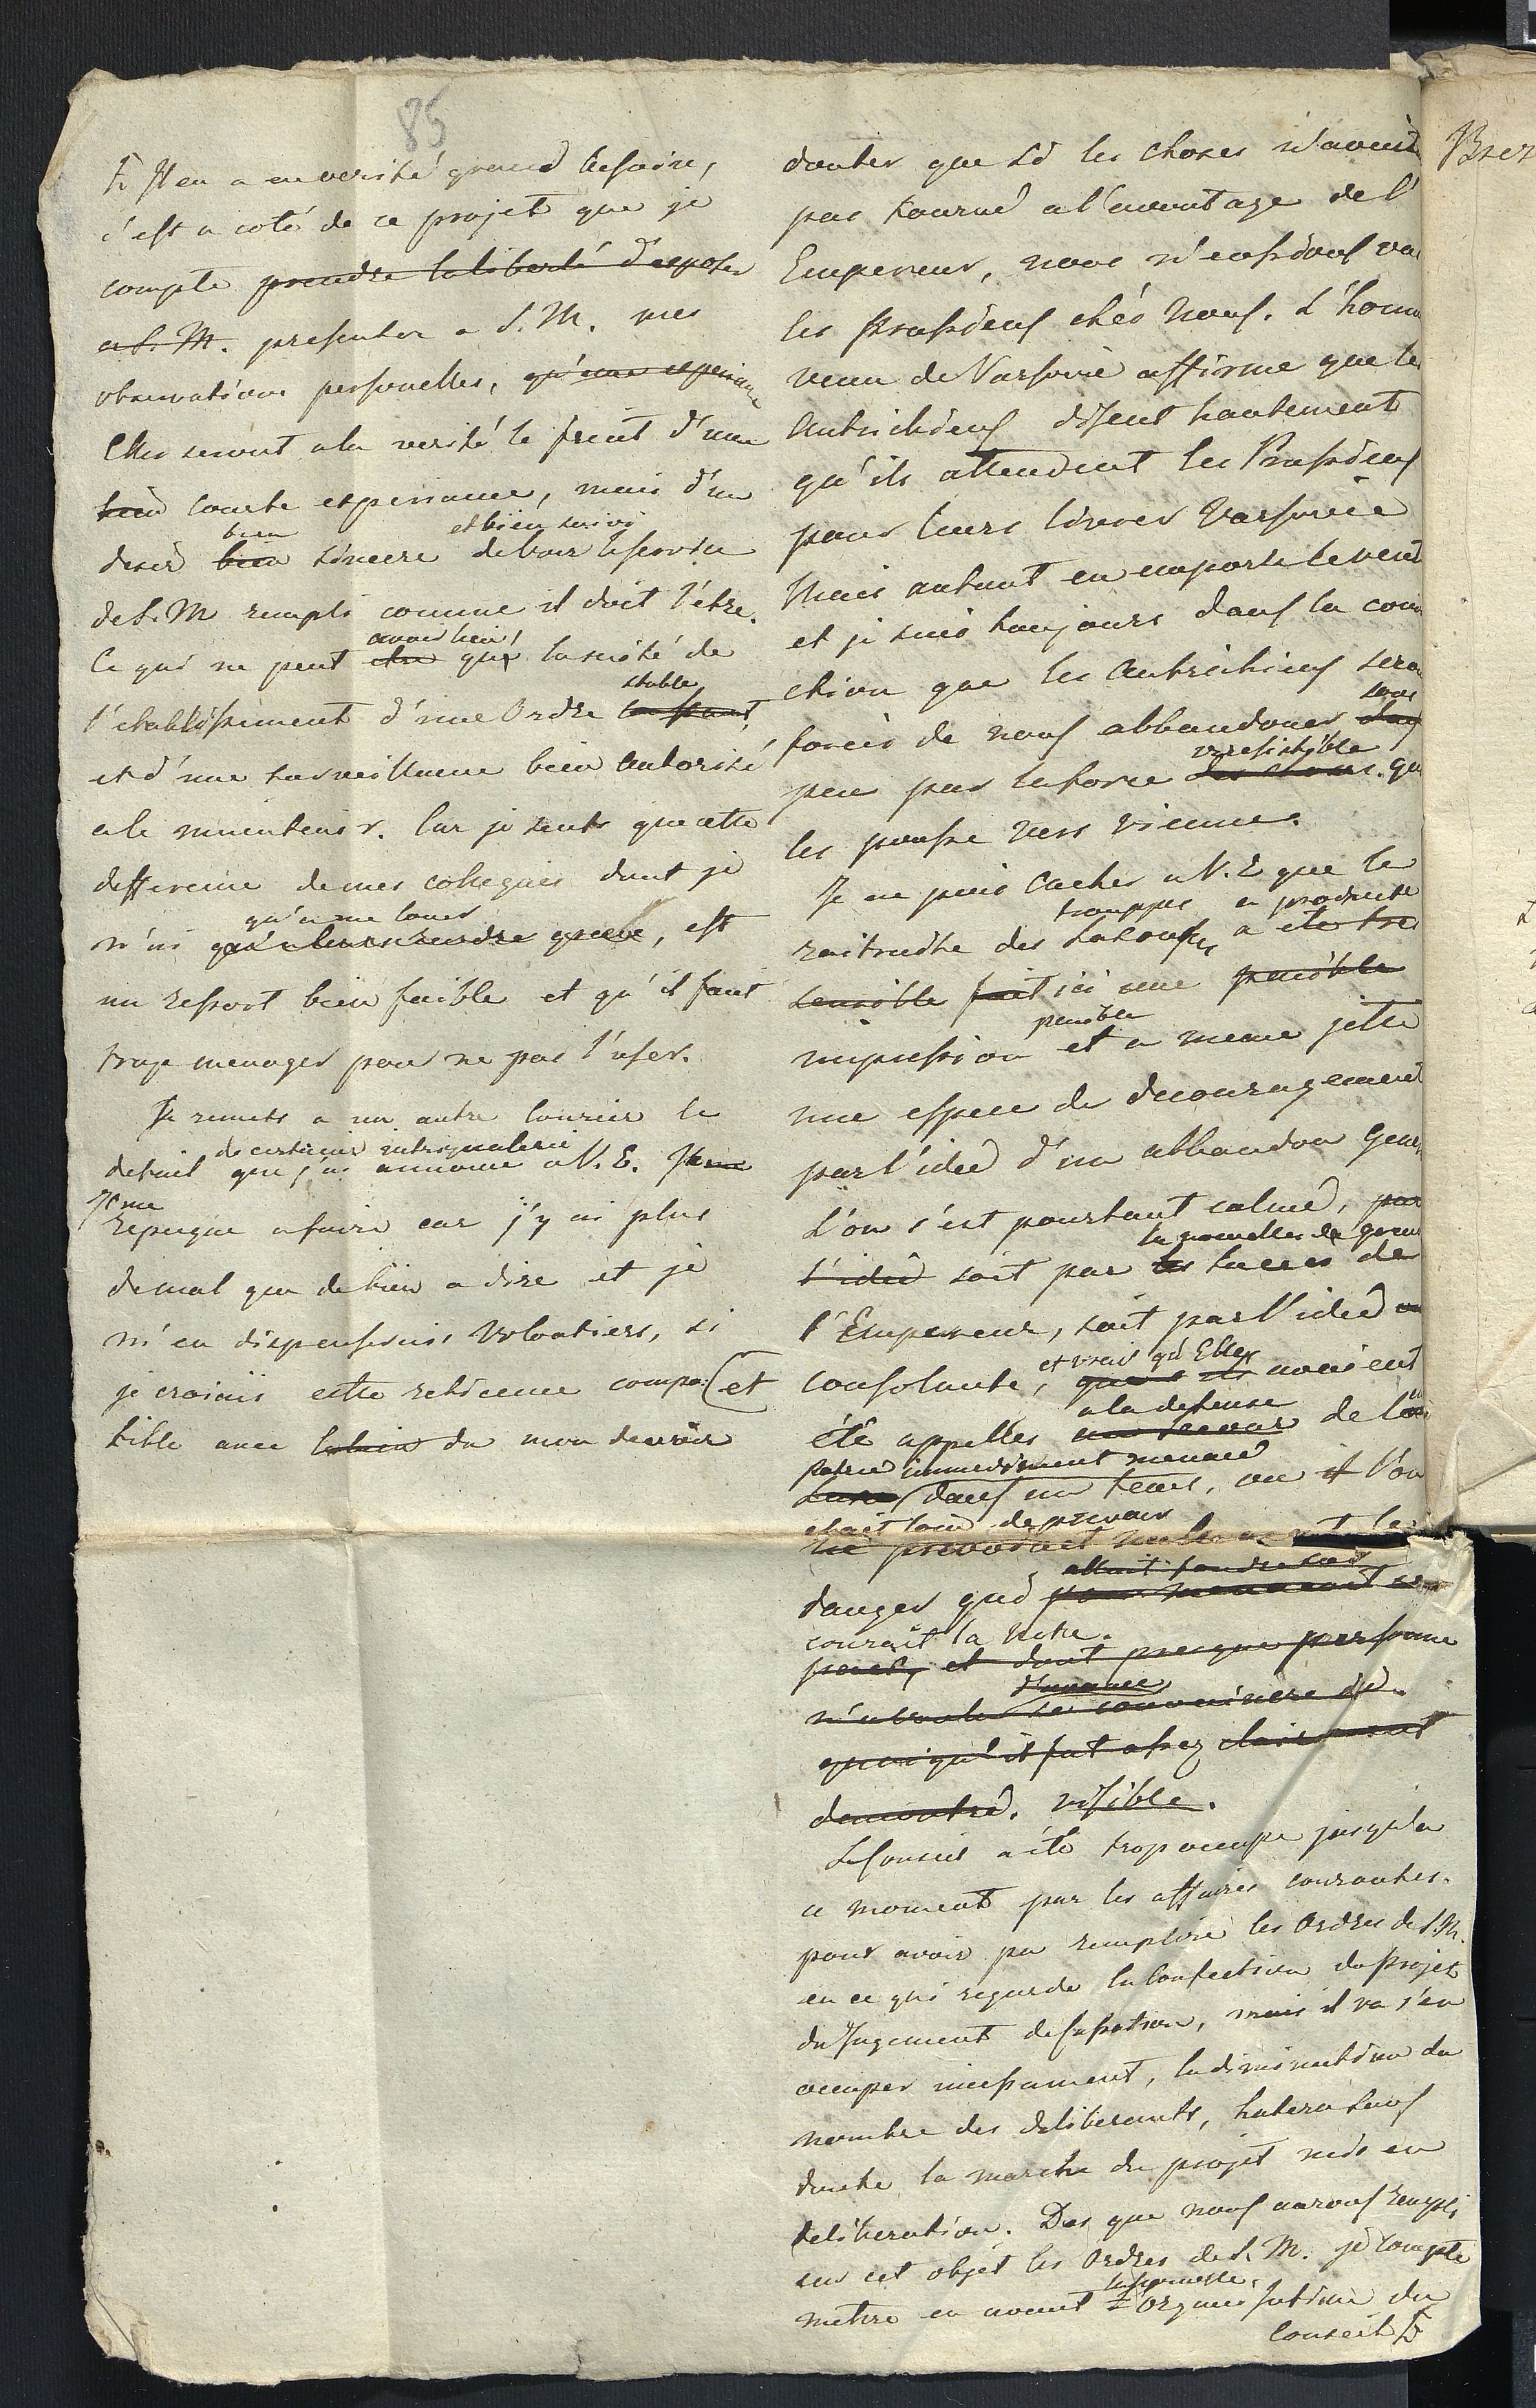 85
douter que si les choses n'avoient
pas tourné a l'avantage de l'
Empereur, nous n'eussions vu
les Prussiens chés nous. L'homme
venu de Varsovie affirme que les
Autrichiens disent hautement
qu'ils attendent les Prussiens
pour leurs livrer Varsovie
Mais autant en emporte le vent
et je suis toujours dans la convi
ction que les Autrichiens seront
forcés de nous abbandoner sous
peu par la force irresistible des choses. qui
les pousse vers Vienne.
Je ne puis cacher a V. E. que la
retraite des trouppes Saxonnes a produite a été tres
sensible fait ici une penible
impression penible et a meme jetté
une espece de decouragement
par l'idée d'un abbandon gener
L'on s'est pourtant calmé, par
l'idée soit par la nouvelles de grand les succès de
l'Empereur, soit par l'idée
consolante, et vrais qu'Elles qu'ils avoient
été appellés a la defense au secour de leur
Patrie immediment menacé dans un tems, ou il l'on
etait loin de prevoir ne prevoioit le
danger qui allait fondre sur
courait la notre.
pays, et dont presque personne
n'a voulu d'avance se convaincre
quoiqu'il fut assez clairement
demontré. visible.
Le Conseil a été trop occupé jusqu'a
ce moment par les affaires courantes.
pour avoir pu remplire les Ordres de S. M.
en ce qui regarde la Confection du projet
du Jugement de Cassation, mais il va s'en
occuper incessament, la diminution du
nombre des deliberants, hatera sans
doute la marche du projet mis en
deliberation. Des que nous aurons rempli
sur cet objet les Ordres de S. M. je compte
mettre en avant la nouvelle Organisation du
Conseil
Il en a en verité grand besoin,
c'est a coté de ce projet que je
compte prendre la liberté d'exposer
a S. M. presenter a S. M. mes
observations personelles, qu'une experience
Elles seront a la verité le fruit d'une
bien courte experiance, mais d'un
desir bien sincere et bien suivi de voir le service
de S. M rempli comme il doit l'etre.
Ce qui ne peut etre avoir lieu que la suité de
l'etablissement d'une Ordre constant stable
et d'une surveillance bien autorisé
a le maintenir. Car je sents que cette
defference de mes collegues dont je
n'ai qu'a me louer qu'a leurs rendre grace, est
un ressort bien faible et qu'il faut
trop menager pour ne pas l'user.
Je remets a un autre Courier le
detail de certaines que j'ai annoncé a V. E. Je me
Je me
repugne a faire car j'y ai plus
de mal que de bien a dire et je
m'en dispenserais volontiers, si
je croiais cette reticence compa= (et
tible avec le bien du mon devoir
Brez